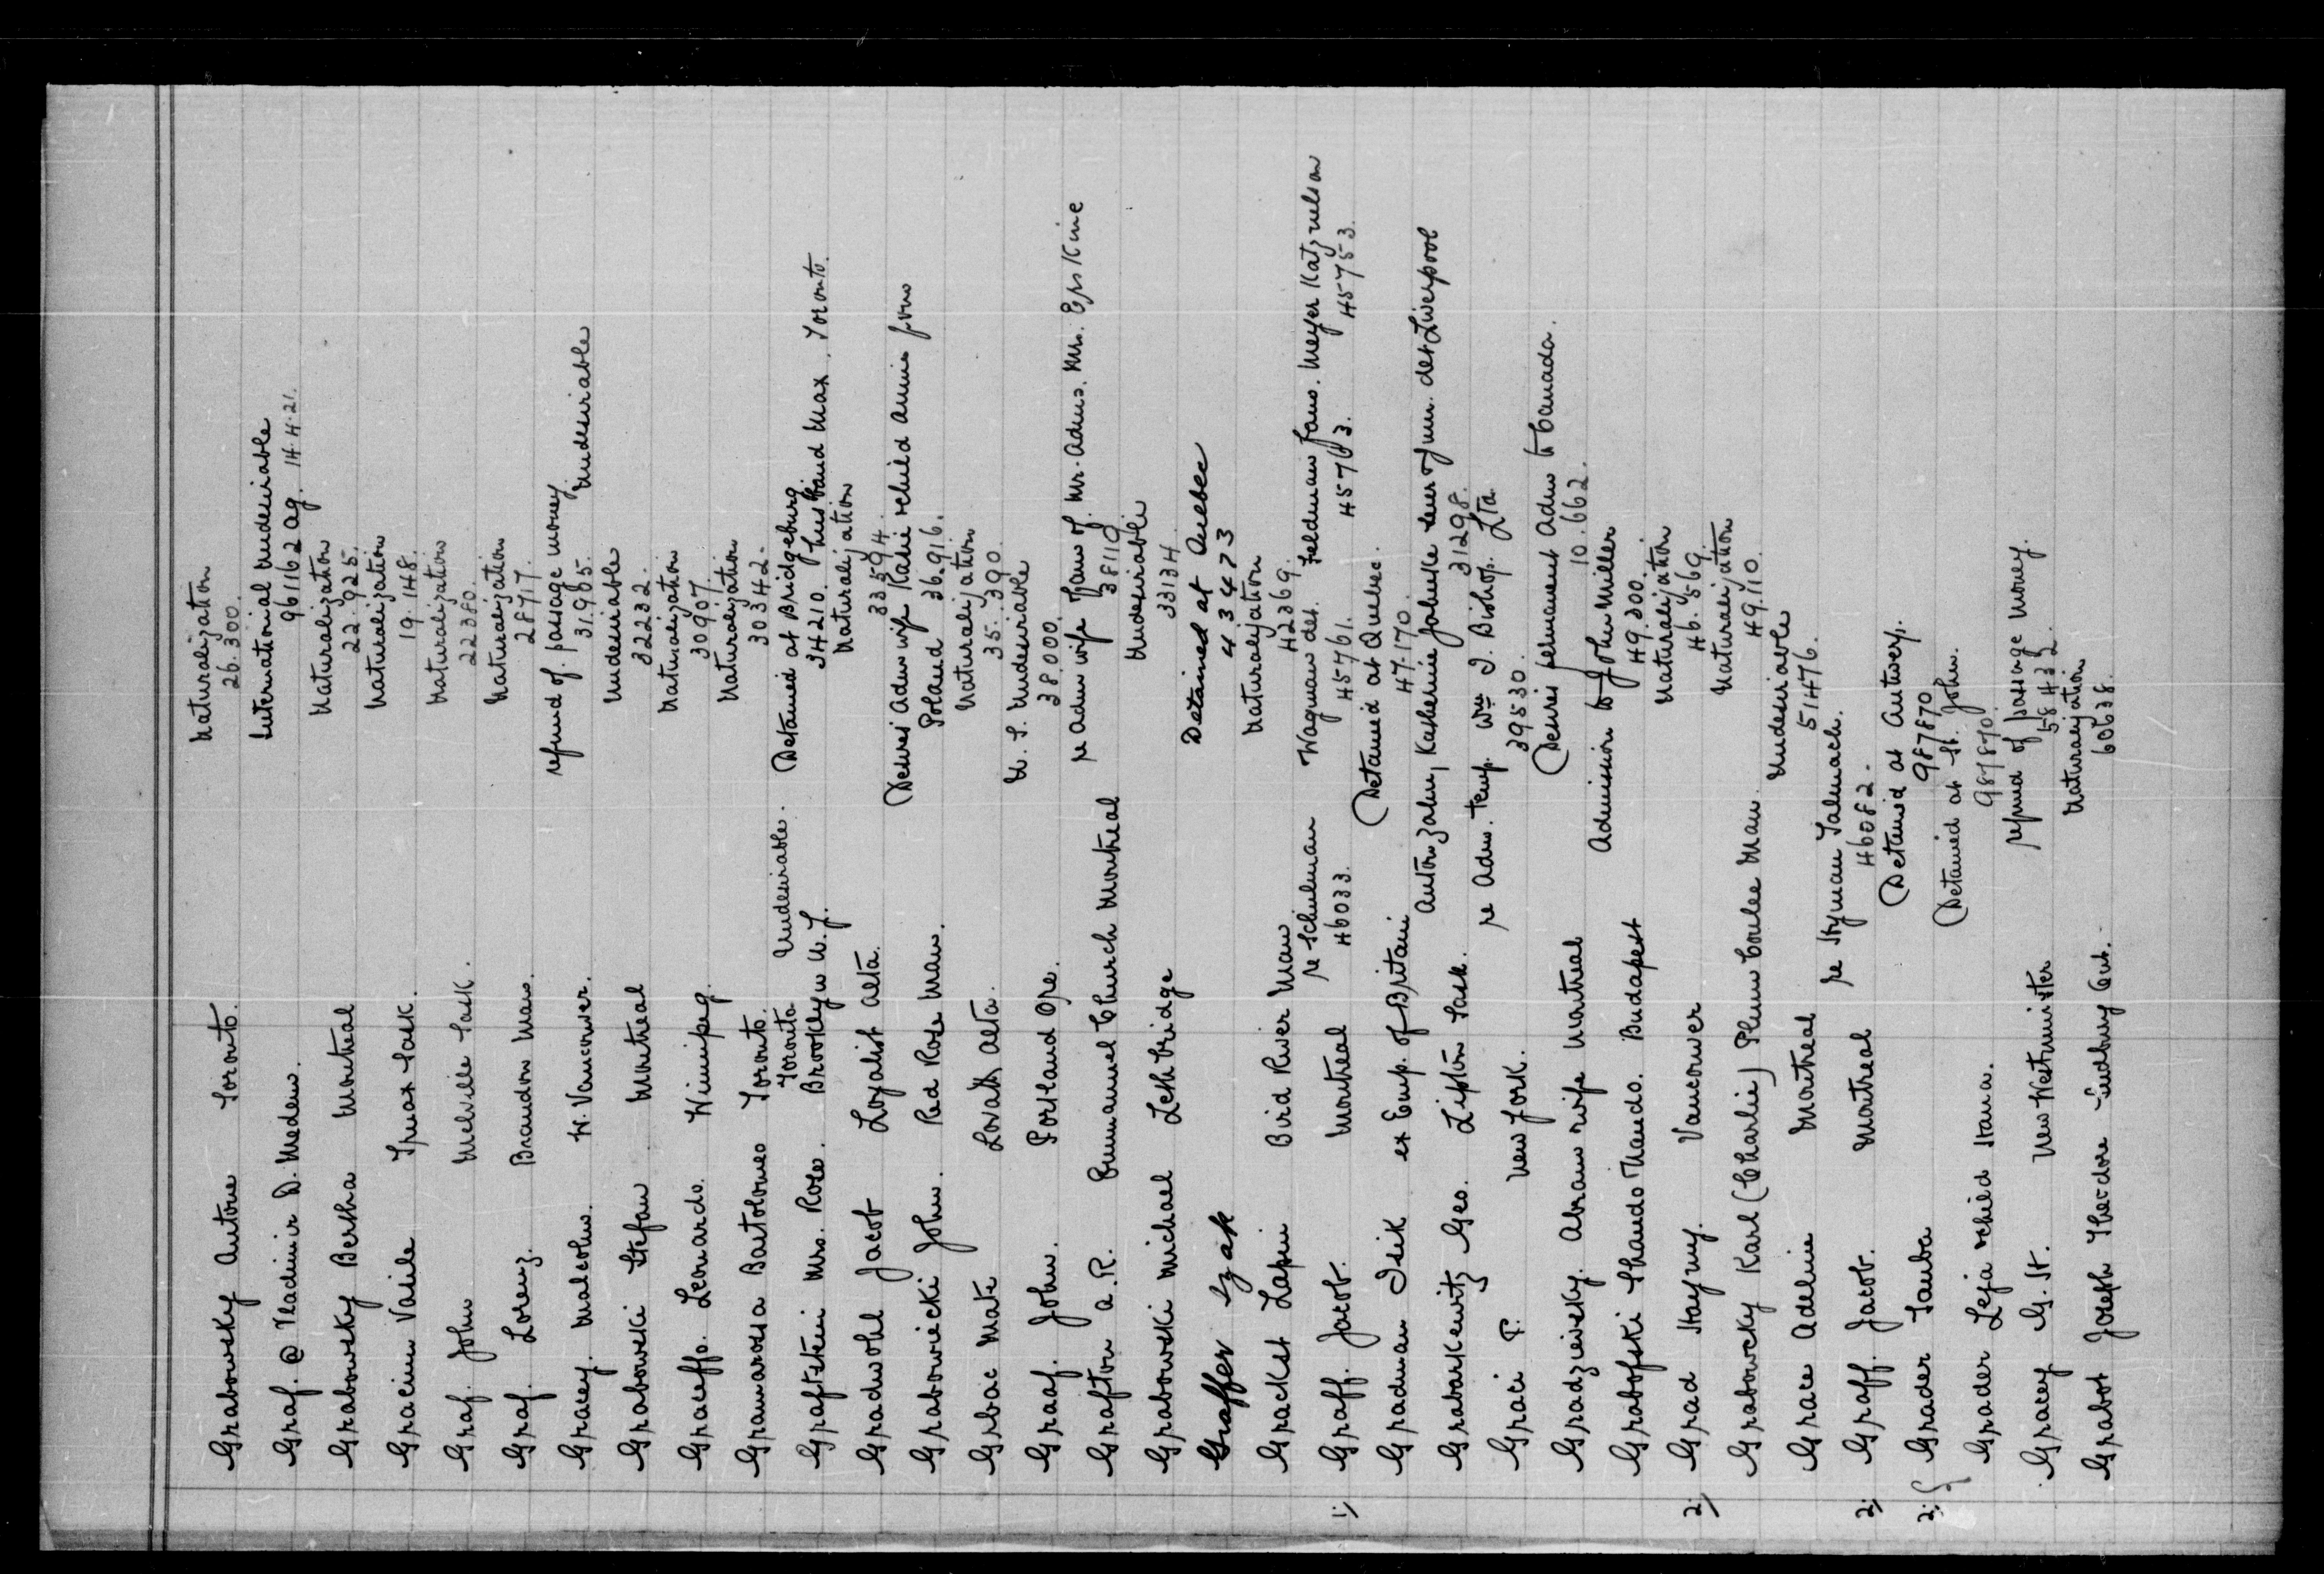 Grabowsky Antone Toronto. Naturalization
26.300.
Graf. @ Vladimir D. Medem. International Undesirable
961162 ag. 14.4.21.
Grabowsky Bertha Montreal Naturalization
22.925.
Gracium Vasile Sask. Naturalization
19.148.
Graf. John Melville Sask. Naturalization
22380.
Graf. Lorenz. Brandon Man. Naturalization
28717.
Gracey. Malcolm. W. Vancouver. refund of passage money.
31.985. Undesirable
Grabowski Stefan Montreal Undesirable
32232.
Graceffo. Leonardo. Winnipeg. Naturalization
30907.
Gramarossa Bartolomeo Toronto. Naturalization
30342.
Toronto Undesirable. Detained at Bridgeburg
Grafstein Mrs. Rose. Brooklyn N.Y. 34210. husband Max, Toronto.
Gradwohl Jacob Loyalist Alta. Naturalization
33594.
Grabowiecki John. Red Rose Man. Desires Adm wife Kadie & child Annie from
Poland 36.916.
Grbac Mate Lovatt Alta. Naturalization
35.390.
Graaf. John. Portland Ore. U.S. Undesirable
38.000.
Grafton A.R. Emmanuel Church Montreal re Adm wife & fam of. Mr. Adms. Mr. Erskine
38119
Grabowski Michael Lethbridge Undesirable
33134.
Graffer Izak Detained at Quebec
434473
Grackst Lapin Bird River Man Naturalization
42369.
re Schulman Wagman det. Feldman fam. Meyer Katznelson
1) Graff. Jacob. Montreal 46033. 45761. 45753.
Gradman Isik ex Emp. of Britain Detained at Quebec.
47.170.
Grabarkewitz Geo. Lipton Sask. Anton Zahn, Katherine & fam. det Liverpool
31298.
Graci P. New York. re Adm. temp. Wm I. Bishop. Ltd
39530.
Gradzievsky. Abram & wife Montreal Desires permanent Adm to Canada.
10.662.
Grabofski Shando Nando. Budapest Admission to John Miller
49.300.
2) Grad Haymy. Vancouver Naturalization
46.569.
Grabowcky Karl (Charlie) Plum Coulee Man. Naturalization
49.110.
Grace Adeline Montreal Undesirable
51476.
2) Graff. Jacob. Montreal re Hyman Salmach.
46082.
2) Grader Tauba Detained at Antwerp.
987870
Grader Leja & child Hana. Detained at St. John.
987870.
Gracey G. H. New Westminster refund of passage money.
58432.
Grabot Joseph Theodore Sudbury Ont. Naturalization
60638.